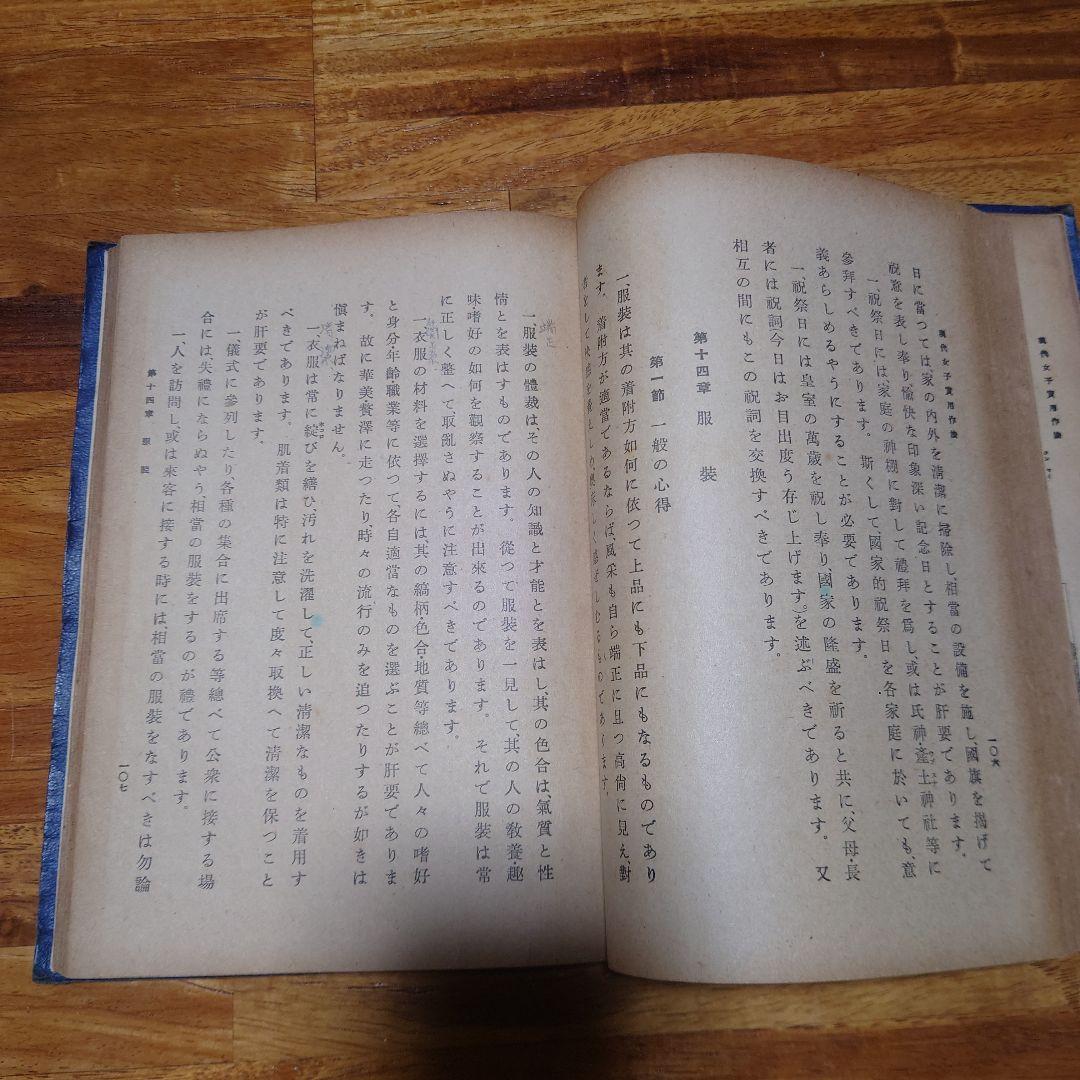 現代女子實用作法
一〇六
日に當つては、家の内外を淸潔に掃除し、相當の設備を施し、國旗を揭げて
祝意を表し奉り、愉快な印象深い記念日とすることが肝要であります。
一、祝祭日には、家庭の神棚に對して禮拜を爲し、或は氏神・產土神社等に
參拜すべきであります。斯くして國家的祝祭日を各家庭に於いても、意
義あらしめるやうにすることが必要であります。
一、祝祭日には皇室の萬歲を祝し奉り、國家の隆盛を祈ると共に、父母・長
者には祝詞今日はお目出度う存じ上げます。)を述ぶべきであります。又
相互の間にもこの祝詞を交換すべきであります。
第十四章 服裝
第一節 一般の心得
一、服裝は其の着附方如何に依つて上品にも下品にもなるものであり
ます。着附方が適當であるならば、風采も自ら端正に且つ高尙に見え、對
者をして快感を しむるものであります。
一、服裝の體裁は、その人の知識と才能とを表はし、其の色合は、氣質と性
情とを表はすものであります。從つて服裝を一見して、其の人の敎養・趣
味・嗜好の如何を觀察することが出來るのであります。それで服裝は常
に正しく整へて、取亂さぬやうに注意すべきであります。
一、衣服の材料を選擇するには、其の縞柄・色合地質等總べて人々の嗜好
と身分・年齡職業等に依つて、各自適當なものを選ぶことが肝要でありま
す。故に華美・贅澤に走つたり、時々の流行のみを追つたりするが如きは
愼まねばなりません。
一、衣服は常に綻びを繕ひ、汚れを洗濯して、正しい淸潔なものを着用す
べきであります。肌着類は特に注意して度々取換へて淸潔を保つこと
が肝要であります。
一、儀式に參列したり、各種の集合に出席する等總べて公衆に接する場
合には、失禮にならぬやう、相當の服裝をするのが禮であります。
一、人を訪問し、或は來客に接する時には、相當の服裝をなすべきは勿論
第十四章 服裝
一〇七
端正
現代女子實用作法